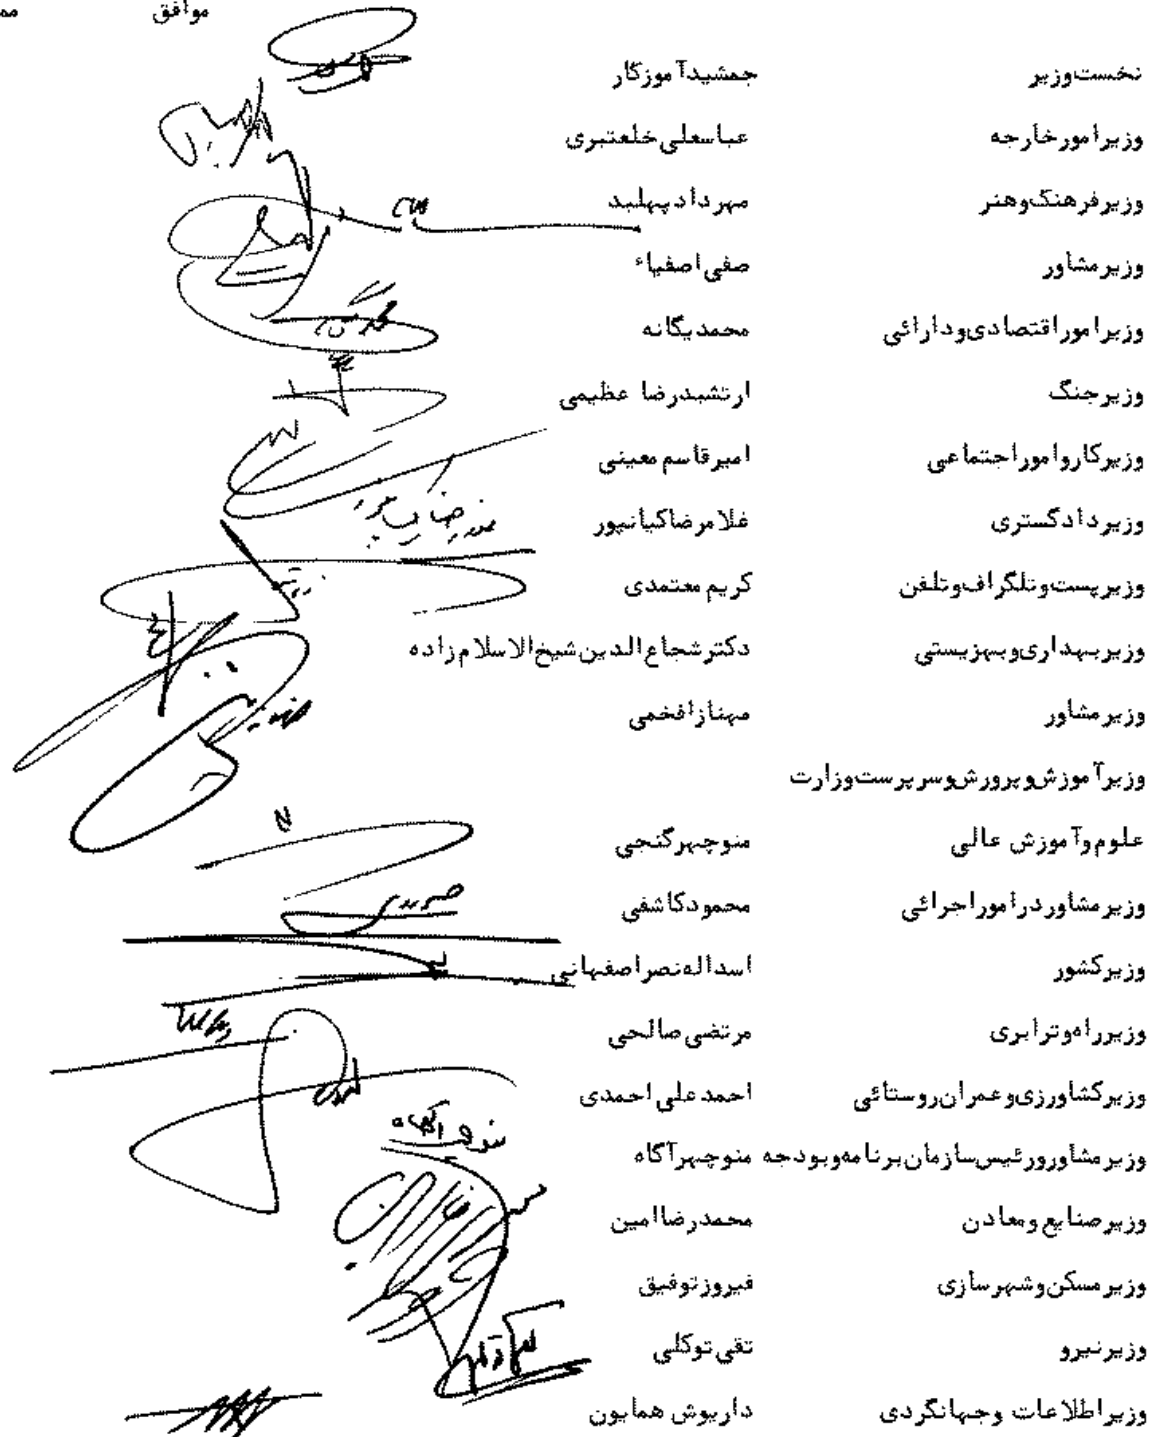 موافق
نخست‌وزیر جمشیدآموزگار
وزیرامورخارجه عباسعلی‌خلعتبری
وزیرفرهنگ‌وهنر مهردادپهلبد
وزیرمشاور صفی‌اصفیاء
وزیراموراقتصادی‌ودارائی محمدیگانه
وزیرجنگ ارتشبدرضا عظیمی
وزیرکارواموراجتماعی امیرقاسم‌معینی
وزیردادگستری غلامرضاکیانپور
وزیرپست‌وتلگراف‌وتلفن کریم‌معتمدی
وزیربهداری‌وبهزیستی دکترشجاع‌الدین‌شیخ‌الاسلام‌زاده
وزیرمشاور مهنازافخمی
وزیرآموزش‌وپرورش‌وسرپرست‌وزارت
علوم‌وآموزش عالی منوچهرگنجی
وزیرمشاوردراموراجرائی محمودکاشفی
وزیرکشور اسداله‌نصراصفهانی
وزیرراه‌وترابری مرتضی‌صالحی
وزیرکشاورزی‌وعمران‌روستائی احمدعلی‌احمدی
وزیرمشاورورئیس‌سازمان‌برنامه‌وبودجه منوچهرآگاه
وزیرصنایع‌ومعادن محمدرضاامین
وزیرمسکن‌وشهرسازی فیروزتوفیق
وزیرنیرو تقی‌توکلی
وزیراطلاعات وجهانگردی داریوش همایون